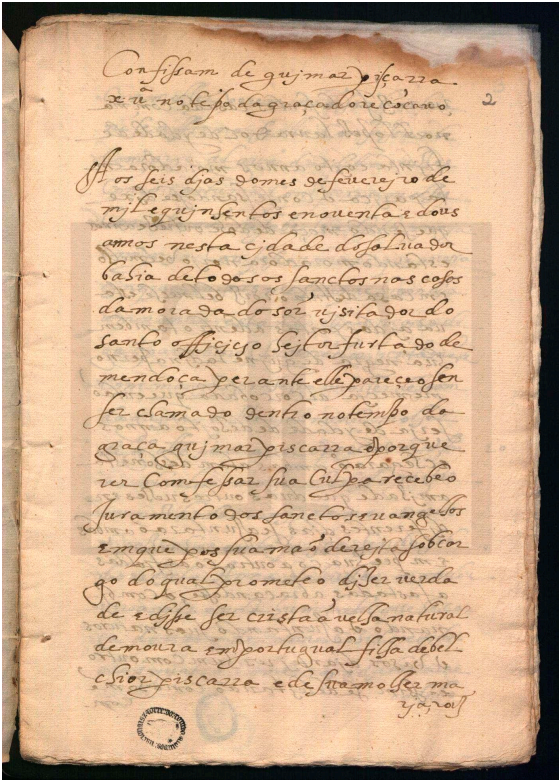 Confissam de guimar piscarra
x vã no tẽpo da graça do recõcavo
2
Aos seis dias do mes de fevereiro de
mil e quinsentos e noventa e dous
annos nesta cidade do salvador
bahia de todos os sanctos nas casas
da morada do sõr visitador do
santo officio heitor furtado de
mendoça perante elle pareçeo sen
ser chamado dentro no tempo da
graça guimar piscarra & por que
rer Comfessar sua Culpa recebeo
Juramento dos sanctos evangelhos
em que pos sua mão dereita sob car
go do qual prometeo dizer verda
de e disse ser cristã velha natural
de moura em portugual filha de bel
chior piscarra e de sua molher ma